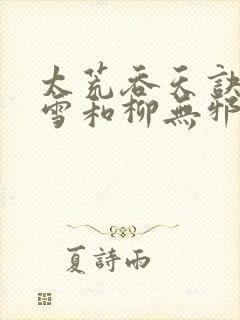 太荒吞天訣
雪和柳無邪
夏詩雨